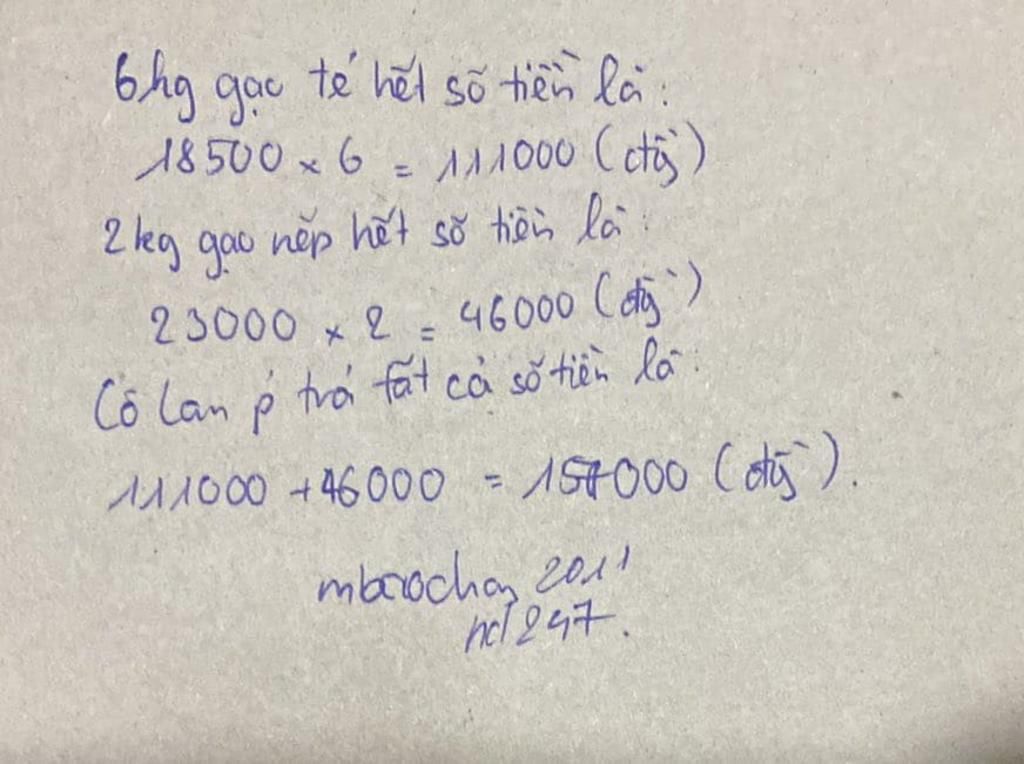 6kg gạo tẻ hết số tiền là:
18500 x 6 = 111000 (đồng)
2kg gạo nếp hết số tiền là:
23000 x 2 = 46000 (đồng)
Cô Lan p' trả tất cả số tiền là:
111000 + 46000 = 157000 (đồng).
2011
hd247.